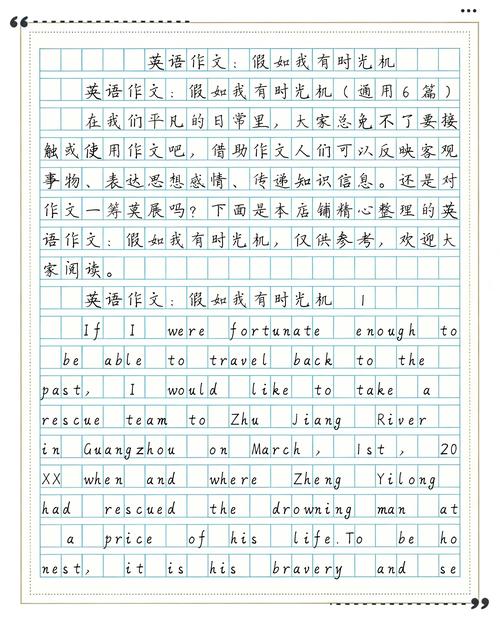 英语作文：假如我有时光机
英语作文：假如我有时光机（通用6篇）
在我们平凡的日常里，大家总免不了要接
触或使用作文吧，借助作文人们可以反映客观
事物、表达思想感情、传递知识信息。还是对
作文一筹莫展吗？下面是本店铺精心整理的英
语作文：假如我有时光机，仅供参考，欢迎大
家阅读。
英语作文：假如我有时光机 1
If I were fortunate enough to
be able to travel back to the
past, I would like to take a
rescue team to Zhu Jiang River
in Guangzhou on March, 1st, 20
XX when and where Zheng Yilong
had rescued the drowning man at
a price of his life.To be ho
nest, it is his bravery and se